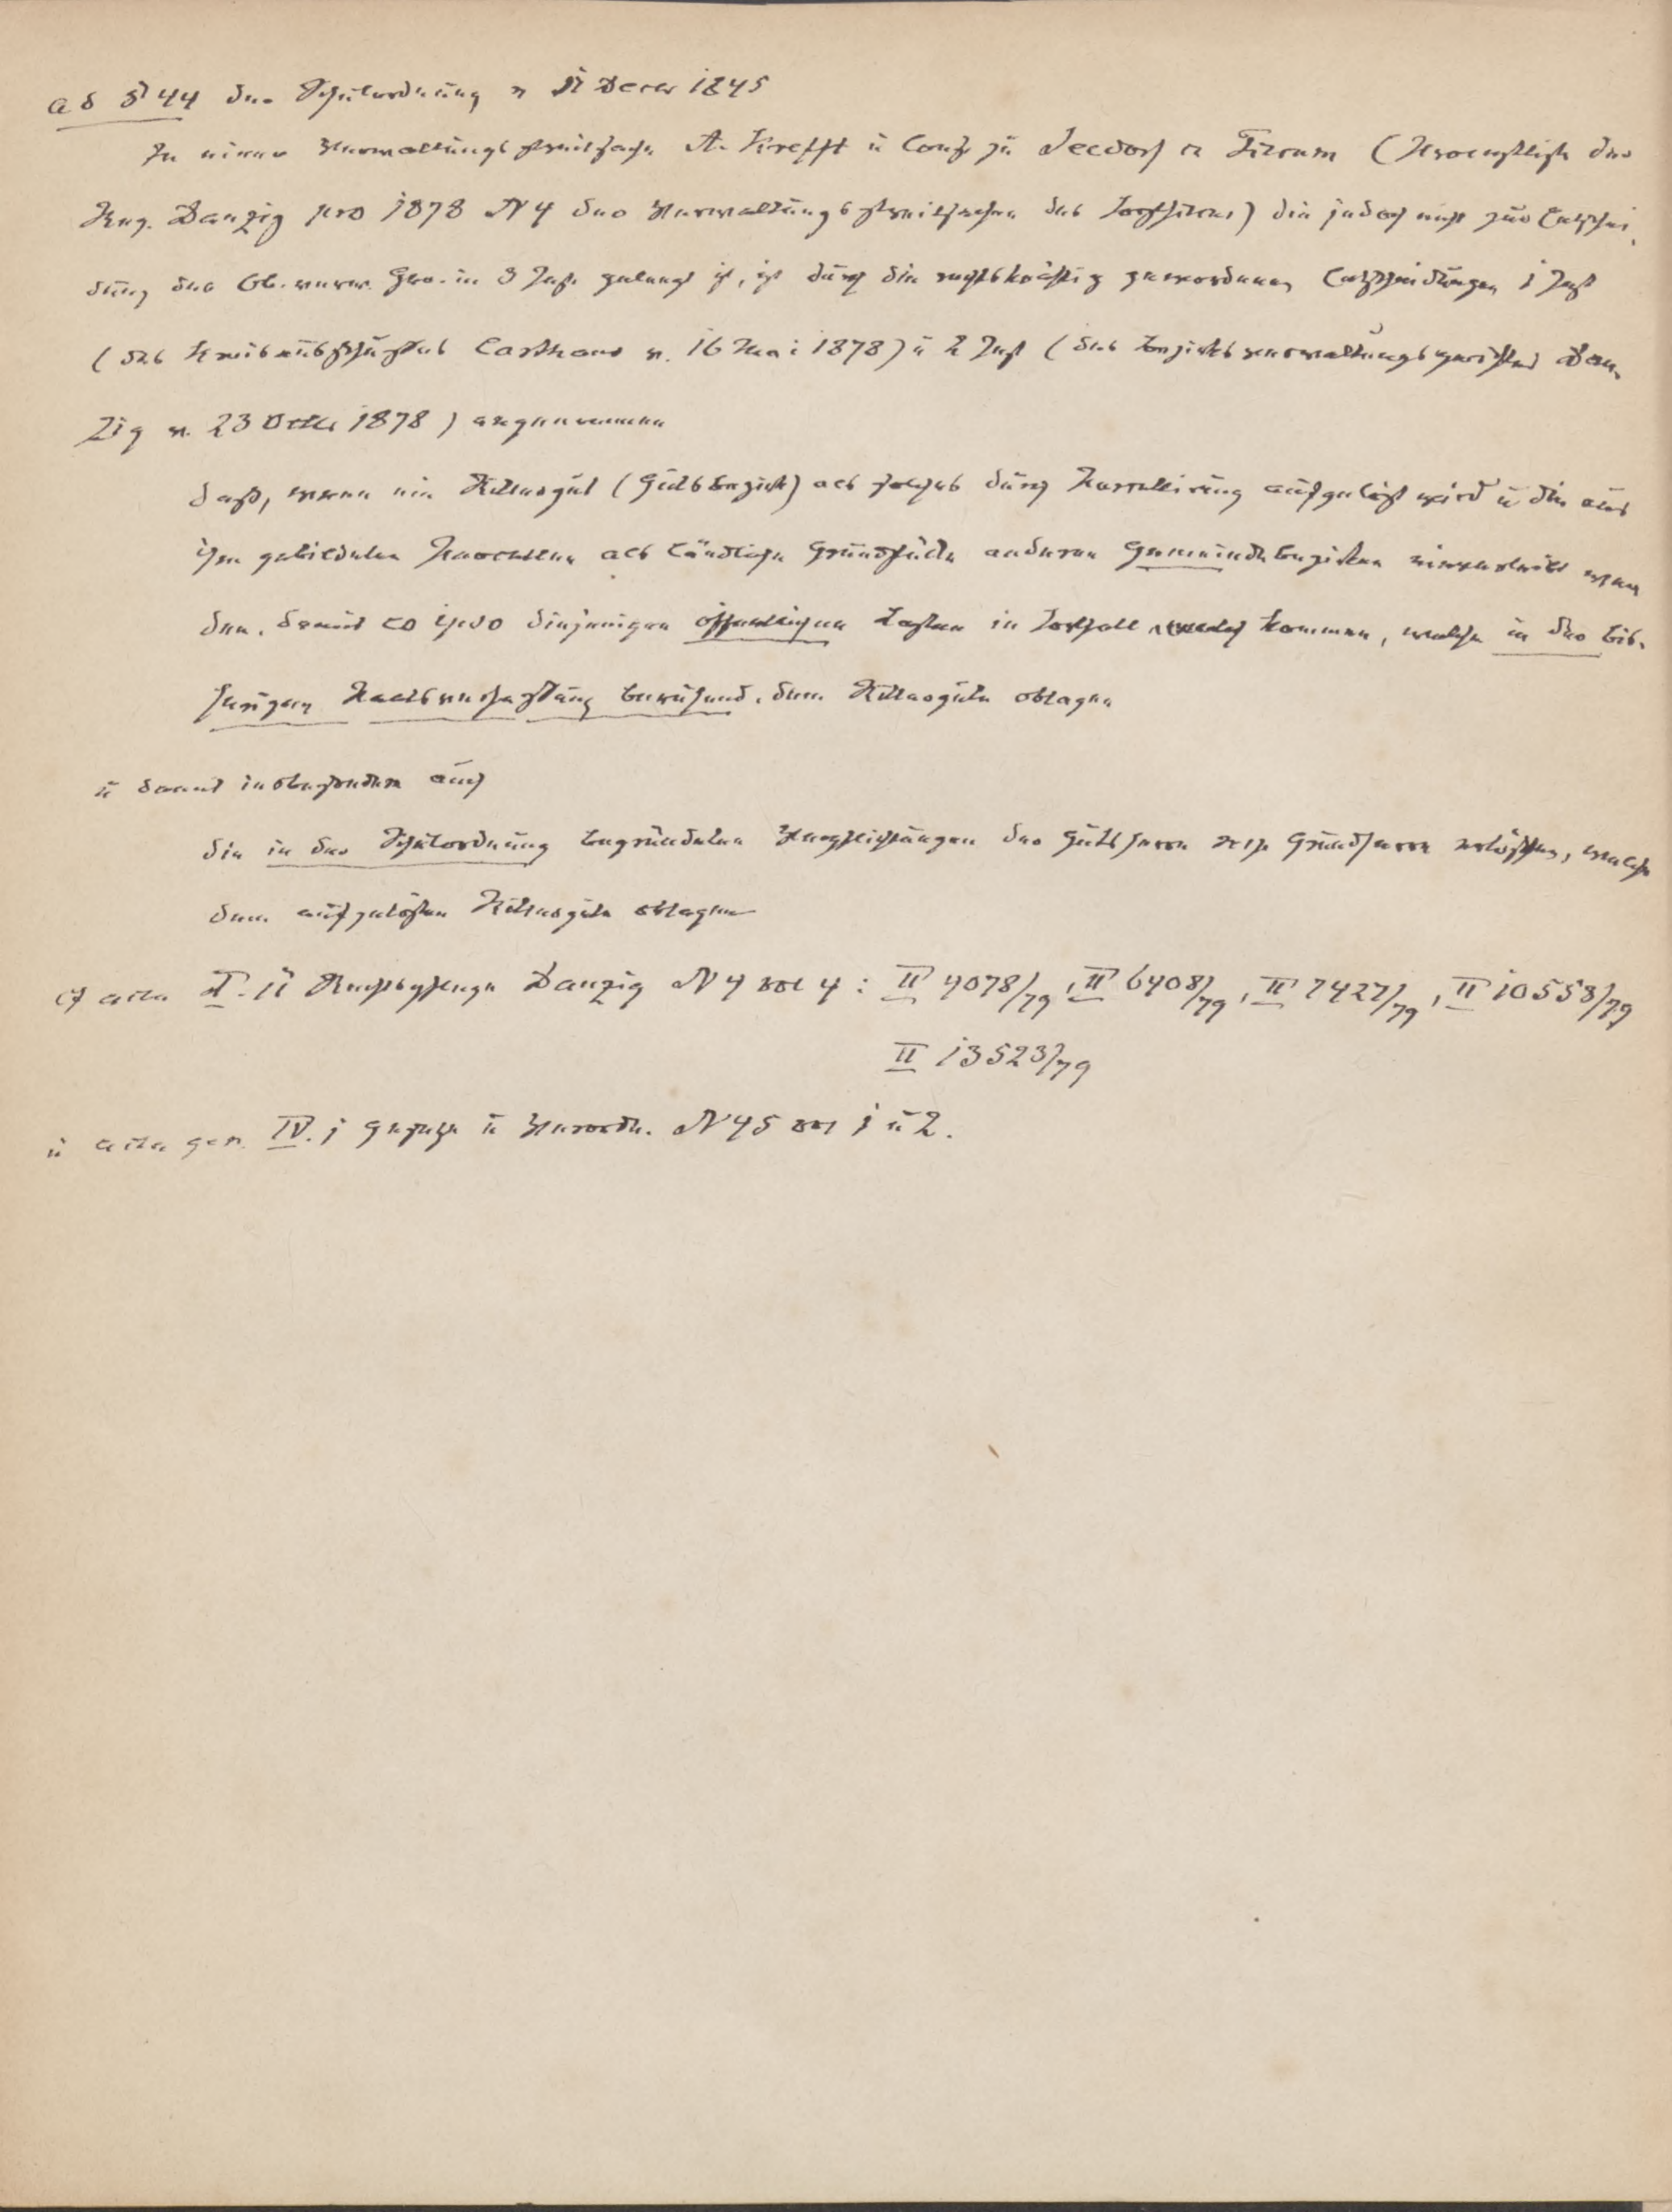 ad § 44 der Schulordnung v 11 Decer 1845
In einer Verwaltungsstreitsache A. Krefft u Cons zu Seedorf ca Fiscum (
Reg. Danzig pro 1878 N 4 der Verwaltungsstreitsachen des Forstfiscus) die jedoch nicht zur Entschei-
dung des Ob. verw. Ger. in 3 Inst. gelangt ist, ist durch die rechtskräftig gewordenen Entscheidungen 1 Inst
(des Kreisausschusses Carthaus v. 16 Mai 1878) u 2 Inst (des Bezirksverwaltungsgerichtes Dan-
zig v. 23 Octbr 1878) angenommen
daß, wenn ein Rittergut (Gutsbezirk) als solches durch Parzellirung aufgelöst wird u die aus
ihm gebildeten Parcellen als ländliche Grundstücke anderen Gemeindebezirken einverleibt wer-
den, damit eo ipso diejenigen öffentlichen Lasten in Fortfall kommen, welche in der bis-
herigen beruhend, dem Rittergute oblagen
u damit insbesondere auch
die in der Schulordnung begründeten Verpflichtungen des Gutsherrn resp Grundherrn erlöschen, welche
dem aufgelösten Rittergute oblagen
cf acta I. 11 Danzig N 4 vol 4 : II 4078/79, II 6408/79, II 7427/79, II 10558/79
II 13523/79
u acta gen. IV. 1 Gesetze u Verordn. N 45 vol 1 u 2.